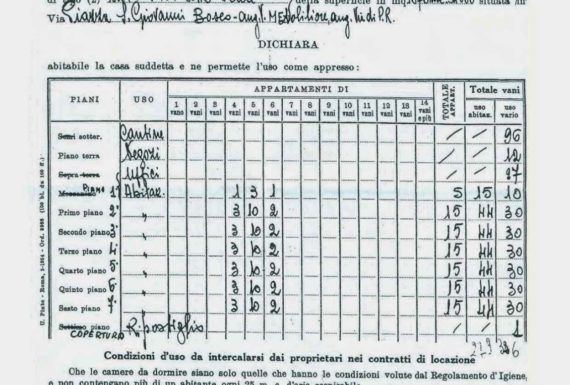 della superficie in mq. situata su
Via Piazza S. Giovanni Bosco - ang. ang. Via di P.R.
DICHIARA
abitabile la casa suddetta e ne permette l'uso come appresso :
PIANI USO APPARTAMENTI DI TOTALE APPART. Totale vani
1 vano 2 vani 3 vani 4 vani 5 vani 6 vani 7 vani 8 vani 9 vani 10 vani 11 vani 12 vani 13 vani 14 vani e più uso abitaz. uso vario
Semi sotter. Cantine / / 96
Piano terra Negozi / / 12
Sopra terra Uffici / / 27
Mezzanino PIANO 1° Abitaz. 1 3 1 5 15 10
Primo piano 2° " 3 10 2 15 44 30
Secondo piano 3° " 3 10 2 15 44 30
Terzo piano 4° " 3 10 2 15 44 30
Quarto piano 5° " 3 10 2 15 44 30
Quinto piano 6° " 3 10 2 15 44 30
Sesto piano 7° " 3 10 2 15 44 30
Settimo piano COPERTURA R. / / 1
279 326
Condizioni d'uso da intercalarsi dai proprietari nei contratti di locazione
Che le camere da dormire siano solo quelle che hanno le condizioni volute dal Regolamento d'Igiene,
e non contengano più di un abitante ogni 25 m. c. d'aria respirabile